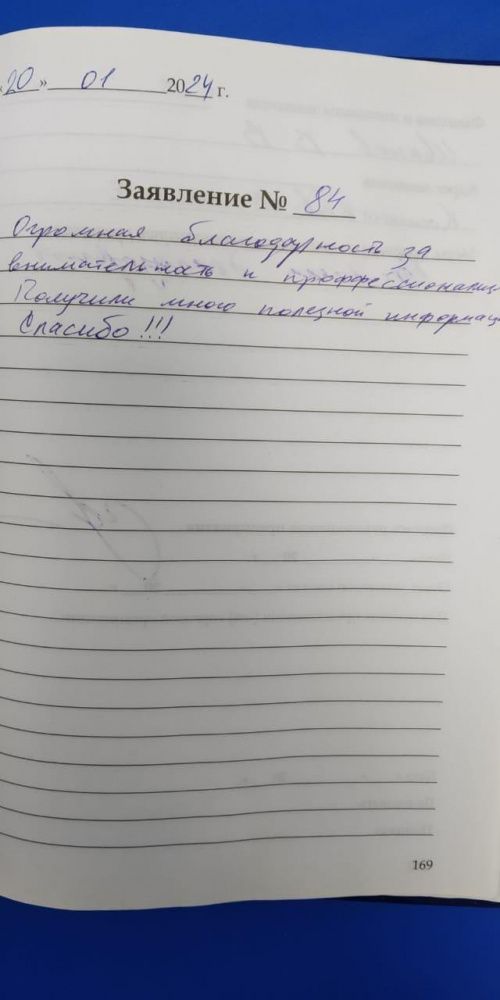 «20» 01 2024 г.
Заявление № 84
Огромная благодарность за
внимательность и профессионализ
Получили много полезной информац
Спасибо !!!
169